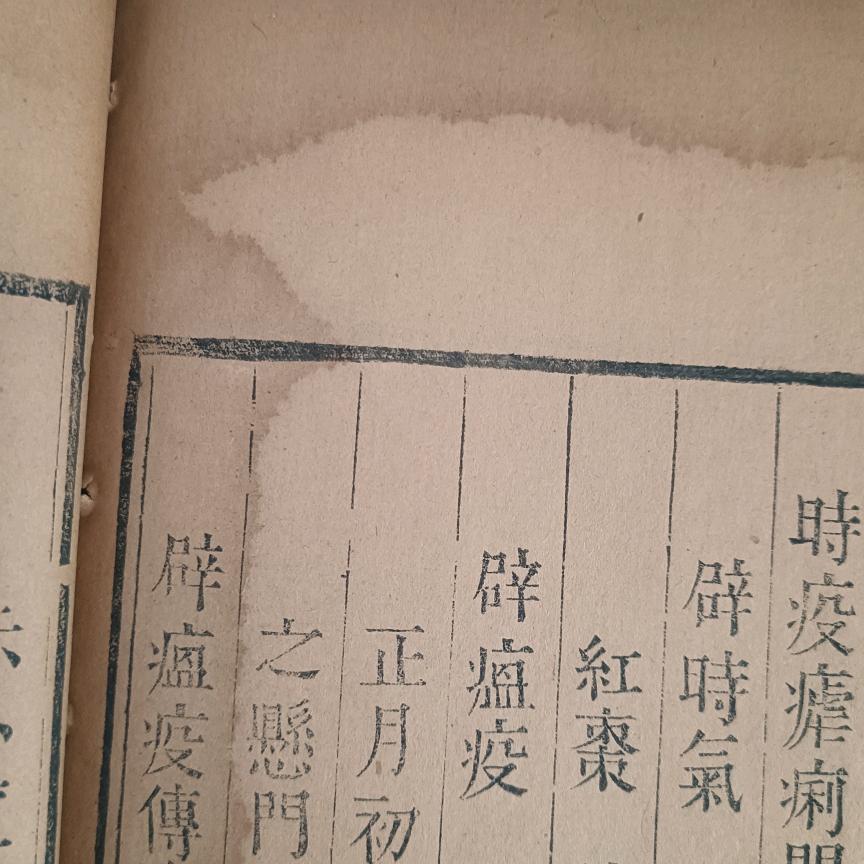 時疫瘧痢門
辟時氣
紅棗
辟瘟疫
正月初
之懸門
辟瘟疫傳